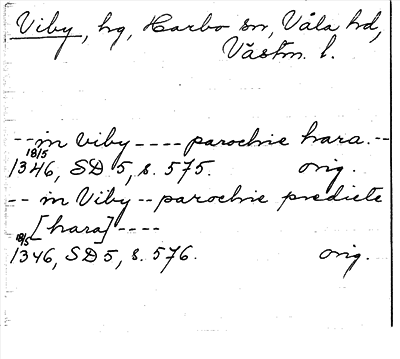 Viby, hg, Harbo sn, Våla hd,
Västm. l.
-- in viby ---- parochie hara. --
18/5
1346, SD 5, s. 575. orig.
-- in Viby -- parochie predicte
[hara] ----
18/5
1346, SD 5, s. 576. orig.